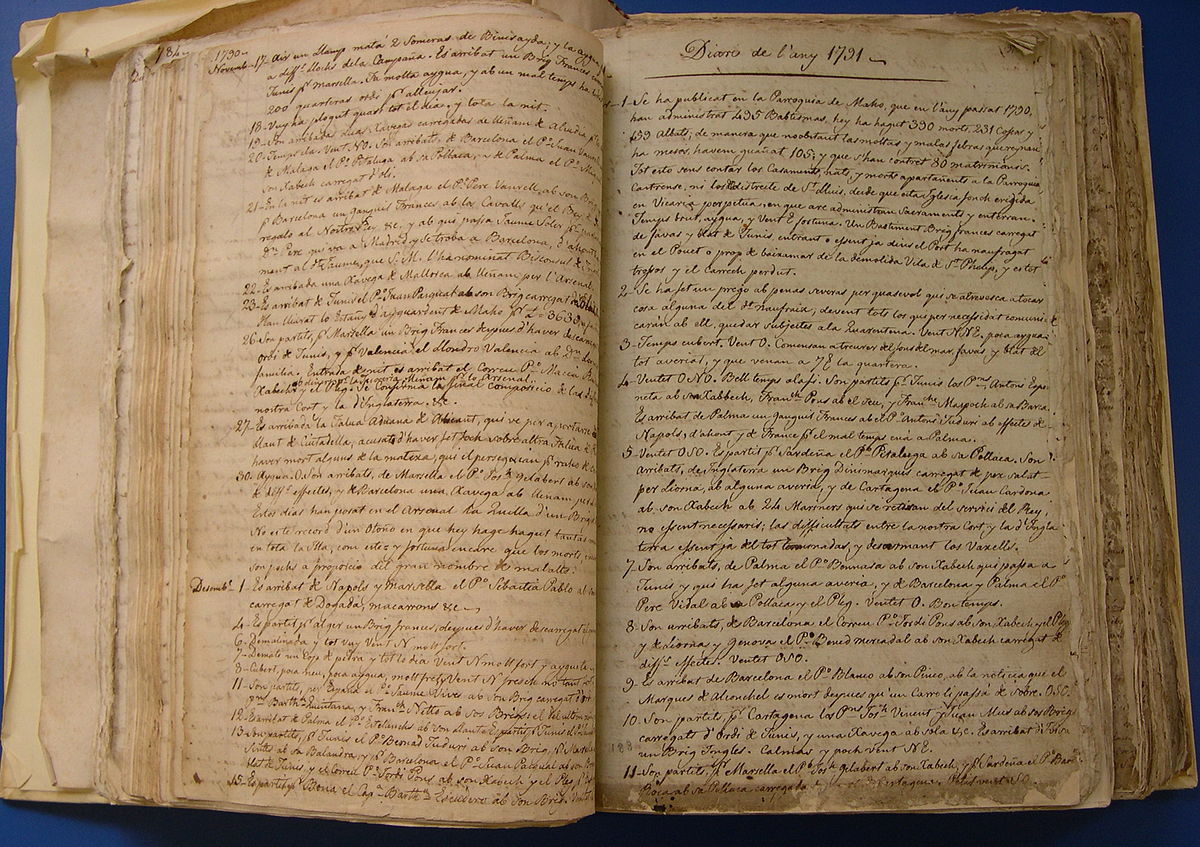 1790
Novemb.
17- Air un llamp matá 2 Someras de Binisayda; y la aygua
a diff.s llochs de la Campaña. Es arribat un Brig Frances
Tunis p.r Marsella. Fa molta aygua, y ab un mal temps ha
200 quarteras ordi p.r alleujar.
18- Vuy ha plogut quasi tot el dia, y tota la nit.
19- Son arribadas duas Xavegas carregadas de lleñam de Alcudia
20- Temps cla. Vent NO. Son arribats, de Barcelona el P.n Juan
de Malaga el P.n Petaluga ab sa Pollaca, y de Palma el P.n
son Xabech carregat d'oli.
21- En la nit es arribat de Malaga el P.n Pere Vaurell, ab son Brig
p.r Barcelona un ganguil Frances ab los Cavalls qu'el Rey
regala al Nostre &c, y ab qui passa Jaume Soler
D.n Pere qui va a Madrid, y se troba a Barcelona, d'ahont
ment al D.n Jaume, que S. M. l'ha nominat Bisconsul de
22- Es arribada una Xavega de Mallorca ab lleñam per l'Arsenal
23- Es arribat de Tunis el P.n Juan Pasqual ab son Brig carregat
S'han lliurat lo Estañ y ayguardent de Maho p.r L 3630
26- Son partits, p.r Marsella un Brig Frances despues d'haver descarregat
ordi de Tunis, y p.r Valencia el Llondro Valencia ab D.n
familia. Entrada de nit es arribat el Correu P.n Macia
Xabech y Pleg. Se confirma la final composicio de las
nostra Cort y la d'Inglaterra. &c.
27- Es arribada la Calua Aduana de Alicant, qui ve per aportarse
llaut de Ciutadella, acusat d'haver fet foch sobre altra Falua
haver mort alguns de la mateixa, qui el perseguian p.r
30- Aygua. O. Son arribats, de Marsella el P.n Jos.h gelabert ab son
de diff.s effectes, y de Barcelona una Xavega ab lleñam per
Estos dias han posat en el Arsenal la Quilla d'un Brig
No este record d'un Otoño en que hey hage hagut tantas
en tota la Illa, com este: y fortuna encare que los morts,
son pochs a proporcio del gran nombre de malalts.
Desemb.r 1- Es arribat de Napols y Marsella el P.n Sebastia Pablo ab
carregat de Dogada, macarrons &c
4- Es partit p.r Alger un Brig frances, despues d'haver descarregat
6- Demalinada y tot vuy Vent N molt fort.
7- Demati un poc de pedra y tot lo dia Vent N molt fort y aygueta
8- Cubert, poca neu, poca aygua, molt fret y Vent N fresch no tant
11- Son partits, per España el P.n Jaume Vives ab son Brig carregat
P.ns Barth.u Quintana, y Fran.ch Netto ab sos Brigs
12- Es arribat de Palma el P.n Estelrichs ab son Llaut
13- Son partits, p.r Tunis el P.n Bernad Tuduri ab son Brig, p.r Marsella
Netto ab sa Balandra, y p.r Barcelona el P.n Juan Pasqual ab son
blat de Tunis, y el Correu P.n Jordi Pons ab son Xabech y el Pleg.
15- Es partit p.r Bona el Cap.n Barth.u Escudero ab son Brig.
Diari de l'any 1791
1- Se ha publicat en la Parroquia de Maho, que en l'any passat 1790,
han administrat 495 Babtismes, hey ha hagut 390 morts, 231 Cosos y
159 Albats; de manera que noobstant las moltas y malas febres que
ha mesos, havem guañat 105; y que s'han contret 80 matrimonis.
Tot esto sens contar los Casaments, nats, y morts apartañents a la Parroquia
Castrense, ni los del districte de S.t Lluis, desde que esta Iglesia fonch erigida
en Vicaria perpetua, en que are administran Sacraments y enterran.
Temps brut, aygua, y Vent E fortuna. Un Bastiment Brig frances carregat
de favas y blat de Tunis, entrant o essent ja dins el Port ha naufragat
en el Pouet o prop de baixamar de la demolida Vila de S.t Phelip, y es tot
trossos y el carrech perdut.
2- Se ha fet un prego ab penas severas per qualsevol qui se atrevesca a tocar
cosa alguna del d.t naufraix, devent tots los qui per necessidat comuni-
caran ab ell, quedar subjectes a la Quarentena. Vent NNE, poca aygua.
3- Temps cubert, Vent O. Comensan a treurer del fons del mar, favas y blat del
tot averiat, y que venan a 7 R la quartera.
4- Ventet ONO. Bell temps alafi. Son partits p.r Tunis los P.ns Antoni Espo-
neta ab son Xabbech, Fran.ch Pons ab el seu, y Fran.ch Maspoch ab sa Barca.
Es arribat de Palma un ganguil Frances ab el P.n Antoni Tuduri ab effectes de
Napols, d'ahont, y de France p.r el mal temps era a Palma.
5- Ventet OSO. Es partit p.r Sardeña el P.n Petaluga ab sa Pollaca. Son
arribats, de Inglaterra un Brig Dinimarques carregat de pex salat
per Liorna, ab alguna averia, y de Cartagena el P.n Juan Cardona
ab son Xabech ab 24 Mariners qui se retiran del servici del Rey,
no essent necessaris; las difficultats entre la nostra Cort y la d'Ingla-
terra essent ja del tot terminadas, y desarmant los Vaxells.
7- Son arribats, de Palma el P.n Bonnasa ab son Xabech qui passa a
Tunis y qui ha fet alguna averia, y de Barcelona y Palma el P.n
Pere Vidal ab sa Pollaca y el Pleg. Ventet O. Bon temps.
8- Son arribats, de Barcelona el Correu P.n Jordi Pons ab son Xabech y el Pleg
y de Liorna, y Genova el P.n Bened Mercadal ab son Xabech carregat de
diff.s effectes. Ventet OSO.
9- Es arribat de Barcelona el P.n Blanco ab son Pinco, ab la noticia que el
Marques de Alconchel es mort despues qu'un Carro li passá de sobre. OSO.
10- Son partits, p.r Cartagena los P.ns Jos.h Vinent y Juan Mus ab sos Brigs
carregats d'Ordi de Tunis, y una Xavega ab sola &c. Es arribat
un Brig Ingles. Calmas y poch Vent NE.
11- Son partits, p.r Marsella el P.n Jos.h gelabert ab son Xabech, p.r Sardeña el P.n
Roca ab sa Pollaca carregada